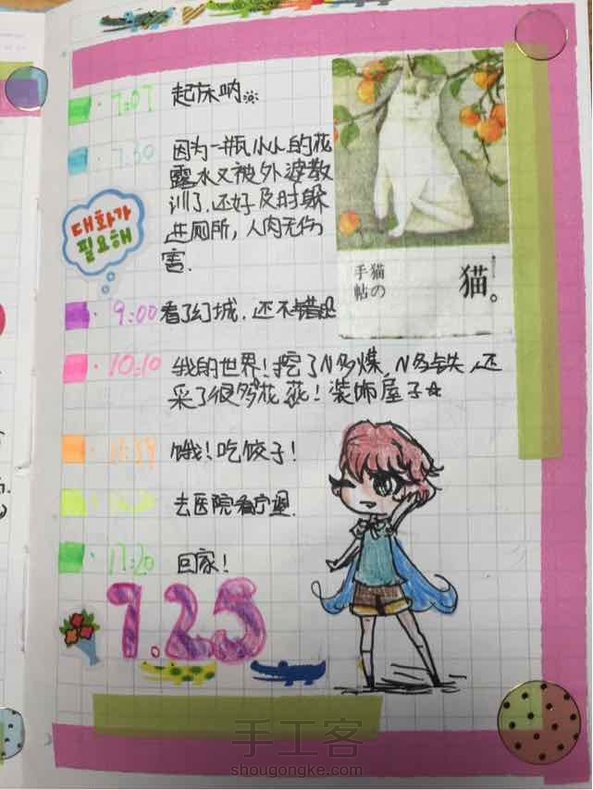 7:07 起床呐
7.30 因为一瓶小小的花
露水又被外婆教
训了.还好及时躲
进厕所，人肉无伤
害.
대화가
필요해
9:00 看了幻城.还不错
10:10 我的世界!挖了N多煤,N多铁,还
采了很多花花!装饰屋子☆
饿!吃饺子!
去医院看宁
17:20 回家!
9.25
猫。
手猫
帖の
手工客
shougongke.com